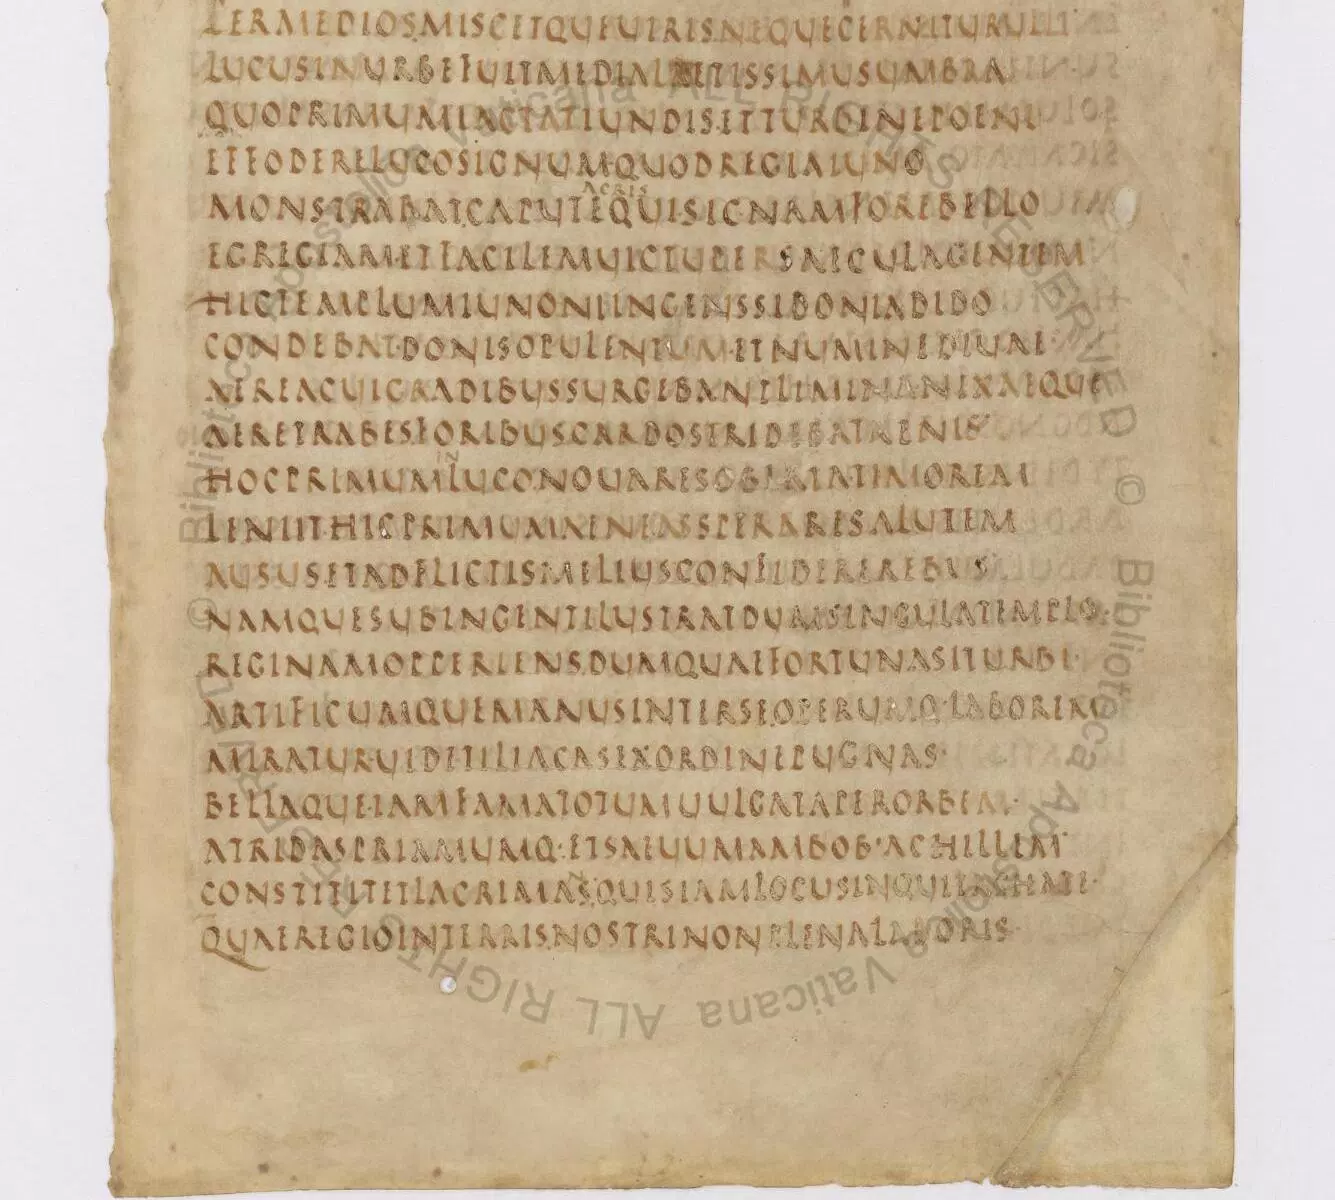 PERMEDIOSMISCETQUEUIRISNEQUECERNITURULLI
LUCUSINURBEFUITMEDIALAETISSIMUSUMBRA
QUOPRIMUMIACTATIUNDISETTURBINEPOENI
EFFODERELUCOSIGNUMQUODREGIAIUNO
ACRIS
MONSTRABATCAPUTEQUISICNAMFOREBELLO
EGREGIAMETFACILEMUICTUPERSAECULAGENTEM
HICTEMPLUMIUNONIINGENSSIDONIADIDO
CONDEBAT·DONISOPULENTUM·ETNUMINEDIUAE·
AEREACUIGRADIBUSSURGEBANTLIMINANIXAEQUE
AERETRABESFORIBUSCARDOSTRIDEBATAENIS·
IN
HOCPRIMUMLUCONOUARESOBLATATIMOREM
LENIIT·HICPRIMUMAENEASSPERARESALUTEM
AUSUSETADFLICTISMELIUSCONFIDEREREBUS·
NAMQUESUBINGENTILUSTRATDUMSINGULATEMPLO·
REGINAMOPPERIENSDUMQUAEFORTUNASITURBI·
ARTIFICUMQUEMANUSINTERSEOPERUMQ·LABOREM
MIRATURUIDETILIACASEXORDINEPUGNAS·
BELLAQUEIAMFAMATOTUMUULGATAPERORBEM·
ATRIDASPRIAMUMQ·ETSAEUUMAMBOB·ACHILLEM·
N
CONSTITITETLACRIMASQUISIAMLOCUSINQUITACHATE·
QUAEREGIOINTERRISNOSTRINONPLENALABORIS·
© Biblioteca Apostolica Vaticana ALL RIGHTS RESERVED © Biblioteca Apostolica Vaticana ALL RIGHTS RESERVED